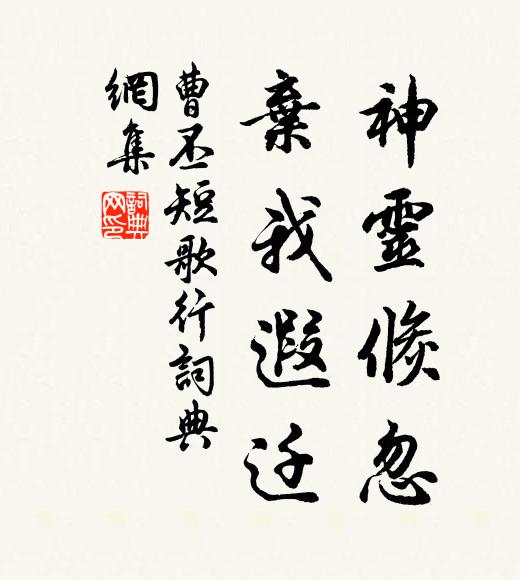 神靈倏忽
棄我遐迁
曹丕短歌行詞典
網集
詞典
网印